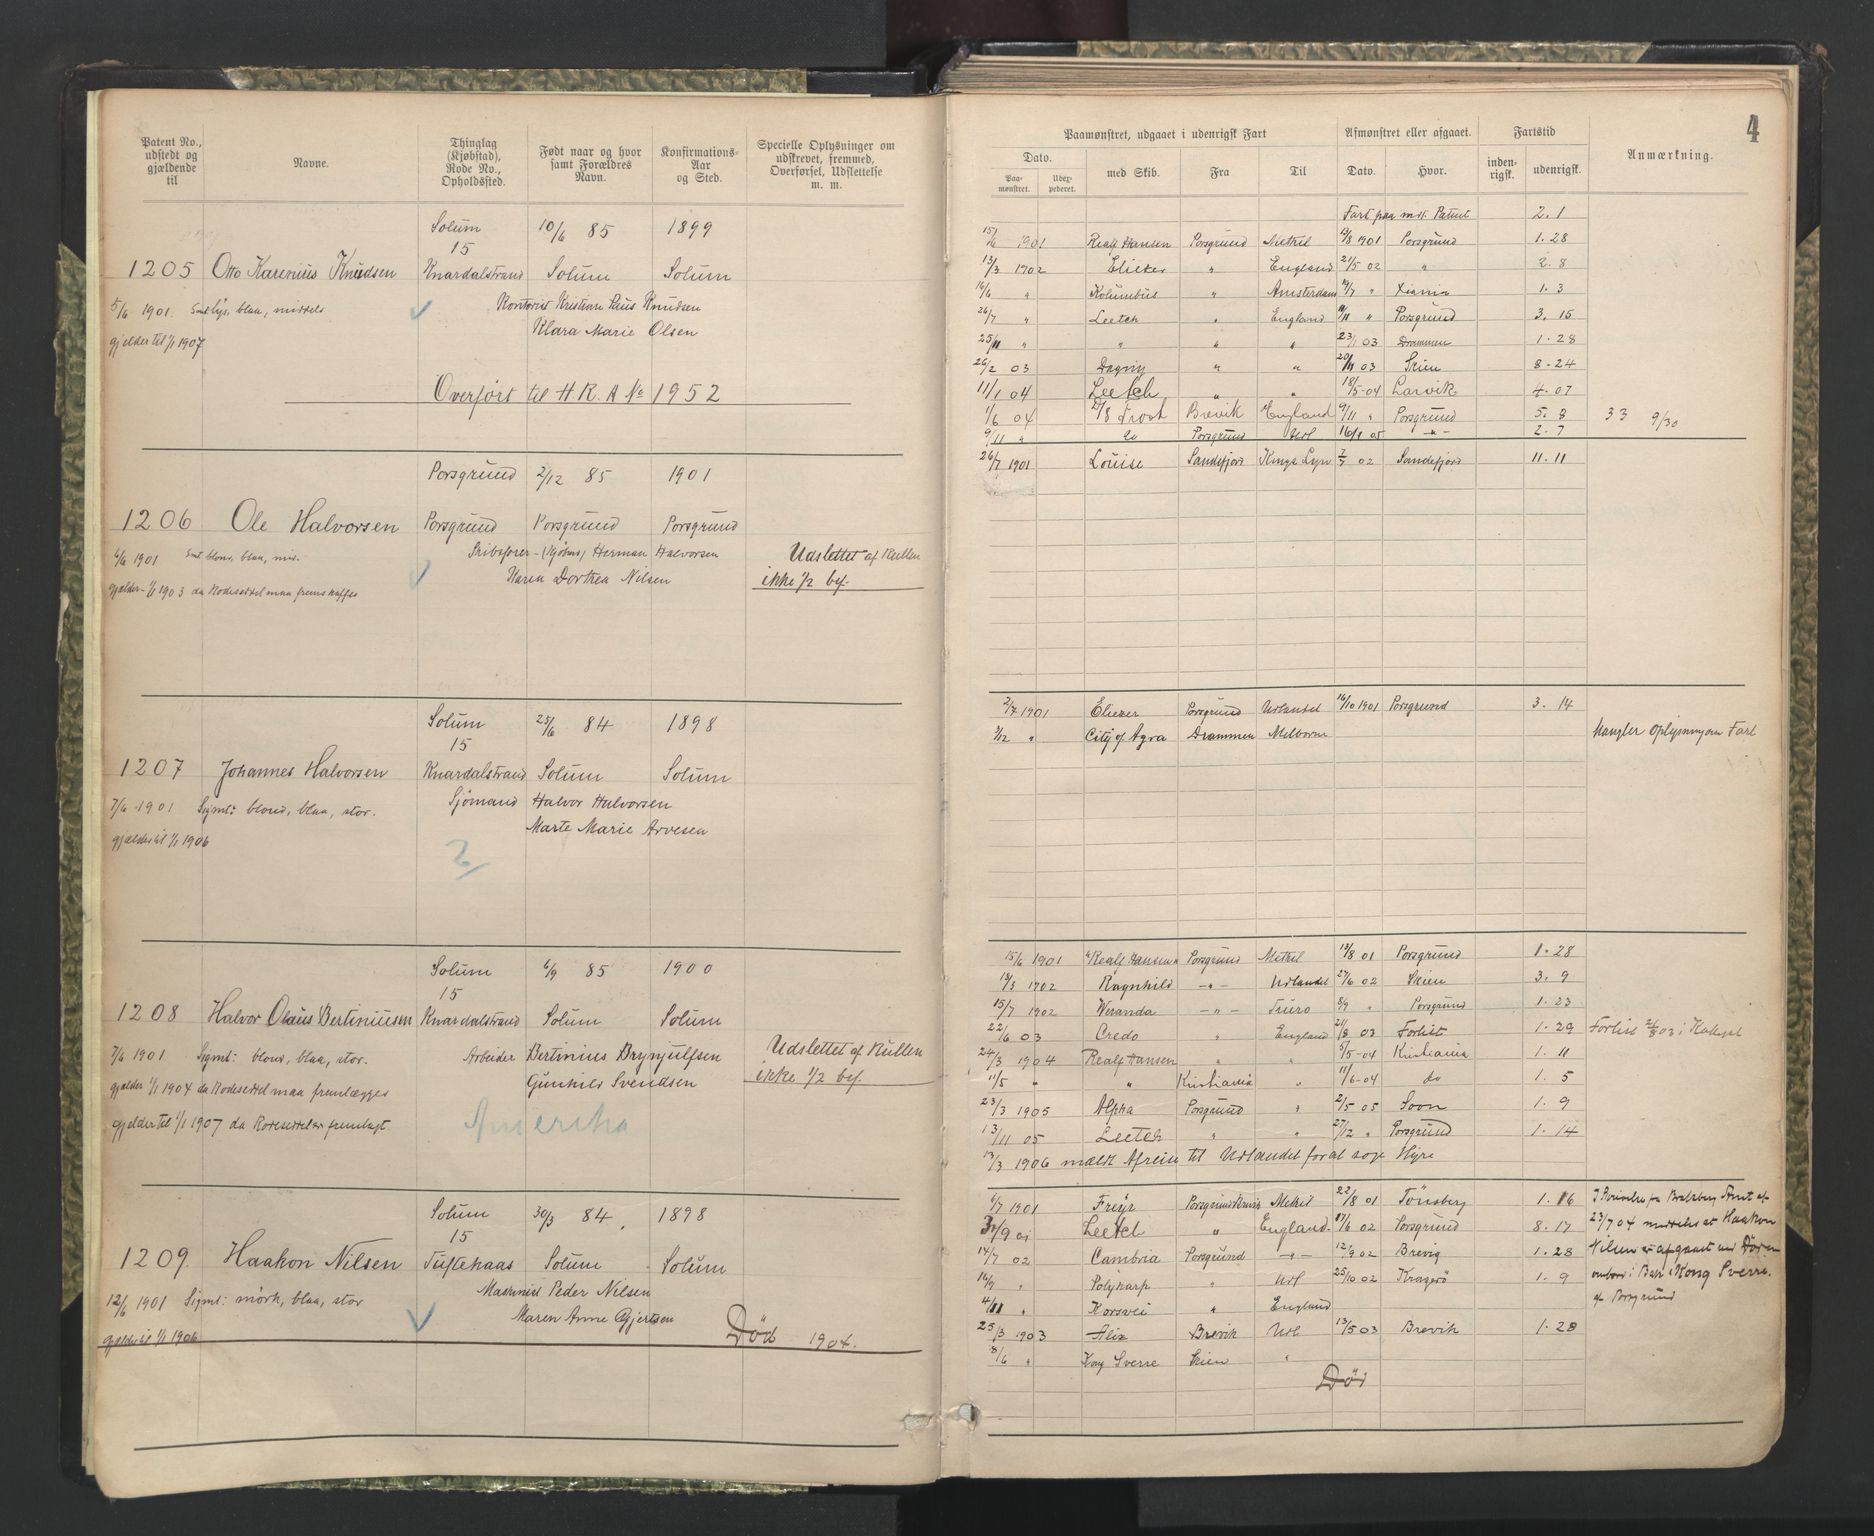 Patent No., udstedt og gjældende til
Navne.
Thinglag (Kjøbstad), Rode No., Opholdssted.
Født naar og hvor samt Forældres Navn.
Konfirmations-Aar og Sted.
Specielle Oplysninger om udskrevet, fremmed, Overførsel, Udslettelse m. m.
Solum 10/6 85 1899
15
1205 Otto Karenius Knudsen Knardalstrand Solum Solum
5/6 1901. blaa, middels Kontorist Kristian Knudsen
Klara Marie Olsen
gjelder til 1/1 1907
Overført til H R. A No 1952
Porsgrund 2/12 85 1901
1206 Ole Halvorsen Porsgrund Porsgrund Porsgrund
6/6 1901 blond, blaa, mid. Herman Halvorsen Udslettet af Rullen
Karen Dortrea Nilsen ikke 1/2 bef.
gjælder 1/1 1903 da Rodeseddel maa fremskaffes
Solum 23/6 84 1898
15
1207 Johannes Halvorsen Knardalstrand Solum Solum
7/6 1901 Sigmt: blond, blaa, stor. Sjømand Halvor Halvorsen
Marte Marie Arvesen
gjælder til 1/1 1906
Solum 6/9 85 1900
15
1208 Halvor Olaus Bertiniusen Knardalstrand Solum Solum
7/6 1901 Sigmt: blond, blaa, stor. Arbeider Bertinius Brynjulfsen Udslettet af Rullen
gjælder 1/1 1904 da Rodeseddel maa fremlægges Gunhild Svendsen ikke 1/2 bef.
gjelder til 1/1 1907 da Rodeseddel er fremlagt Amerika
Solum 30/3 84 1898
15
1209. Haakon Nilsen Tuftehaas Solum Solum
12/6 1901 Sigmt: mørk, blaa, stor Maskinist Peder Nilsen
Maren Anne Gjertsen
gjælder til 1/1 1906 Død 1904.
4
Paamønstret, udgaaet i udenrigsk Fart
Afmønstret eller afgaaet.
Fartstid
Anmærkning.
Dato. Paamønstret. Udexpederet.
med Skib. Fra Til Dato. Hvor. indenrigsk. udenrigsk.
Fart paa mdl. Patent 2. 1
15/6 1901 Realf Hansen Porsgrund Methil 13/8 1901 Porsgrund 1. 28
13/3 1902 Eliezer " England 21/5 02 " 2. 8
16/6 " Kolumbus " Amsterdam 19/7 " Xiania 1. 3
26/7 " Leetch " England 11/11 " Porsgrund 3. 15
25/11 " " " " 23/1 03 Drammen 1. 28
26/2 03 Dagny " " 20/11 03 Skien 8. 24
11/1 04 Leetch " " 18/5 04 Larvik 4. 07
1/6 04 D/S Frost Brevik England 9/11 " Porsgrund 5. 8 33 9/30
9/11 " do Porsgrund Udl 16/1 05 -"- 2. 7
26/7 1901 Louise Sandefjord Kings Lyn 7/7 02 Sandefjord 11. 11
2/7 1901 Eliezer Porsgrund Udlandet 16/10 1901 Porsgrund 3. 14
3/12 " City of Agra Drammen Melborne Mangler Oplysning om Fart
15/6 1901 "Realf Hansen" Porsgrund Methil 13/8 01 Porsgrund 1. 28
18/3 1902 Ragnhild -"- Udlandet 27/6 02 Skien 3. 9
15/7 1902 Weranda -"- Truro 8/9 " Porsgrund 1. 23
22/6 03 Credo " England 21/8 03 Forlist 1. 29 Forlist 21/8 03 i
24/3 1904 Realf Hansen " " 5/5-04 Kristiania 1. 11
11/5 " " Kristiania " 11/6-04 do 1. 5
23/3 1905 Alpha Porsgrund " 2/5 05 Soon 1. 9
13/11 05 Leetch " " 27/12 " Porsgrund 1. 14
13/3 1906 meldt Afreise til Udlandet for at søge Hyre
6/7 1901 Freyr Porsgrund Methil 22/8 01 Tönsberg 1. 16
30/9 01 Leetch " England 17/6 02 Porsgrund 8. 17
14/7 02 Cambria Porsgrund -"- 12/9 02 Brevig 1. 28
16/9 " Polykarp " Udl 25/10 02 Kragerö 1. 9
4/11 " Korsvei " England
25/3 1903 Alix Brevik Udl 13/5 03 Brevik 1. 28
8/6 " Kong Sverre Skien "
Død
I Skrivelse fra Bratsberg Amt af
23/7 04 meddeles at Haakon
Nilsen er afgaaet ved Døden
ombord i Bark Kong Sverre.
af Porsgrund